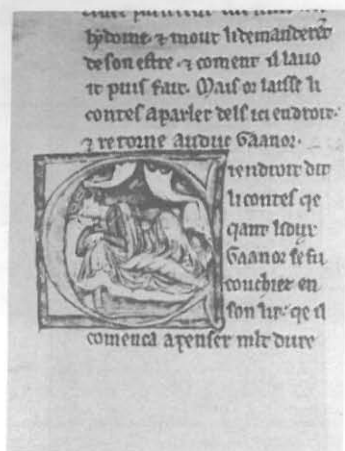 hydoine ⁊ mout li demanderẽt
de son estre ⁊ coment il lauo
it puis fait. Mais or laisse li
contes a parler dels ici endroit.
⁊ retorne au duc Gaanor.
Ciendroit dit
li contes qe
qant li dux
Gaanor se fu
couchiez en
son lit. qe il
comenca a penser mlt dure